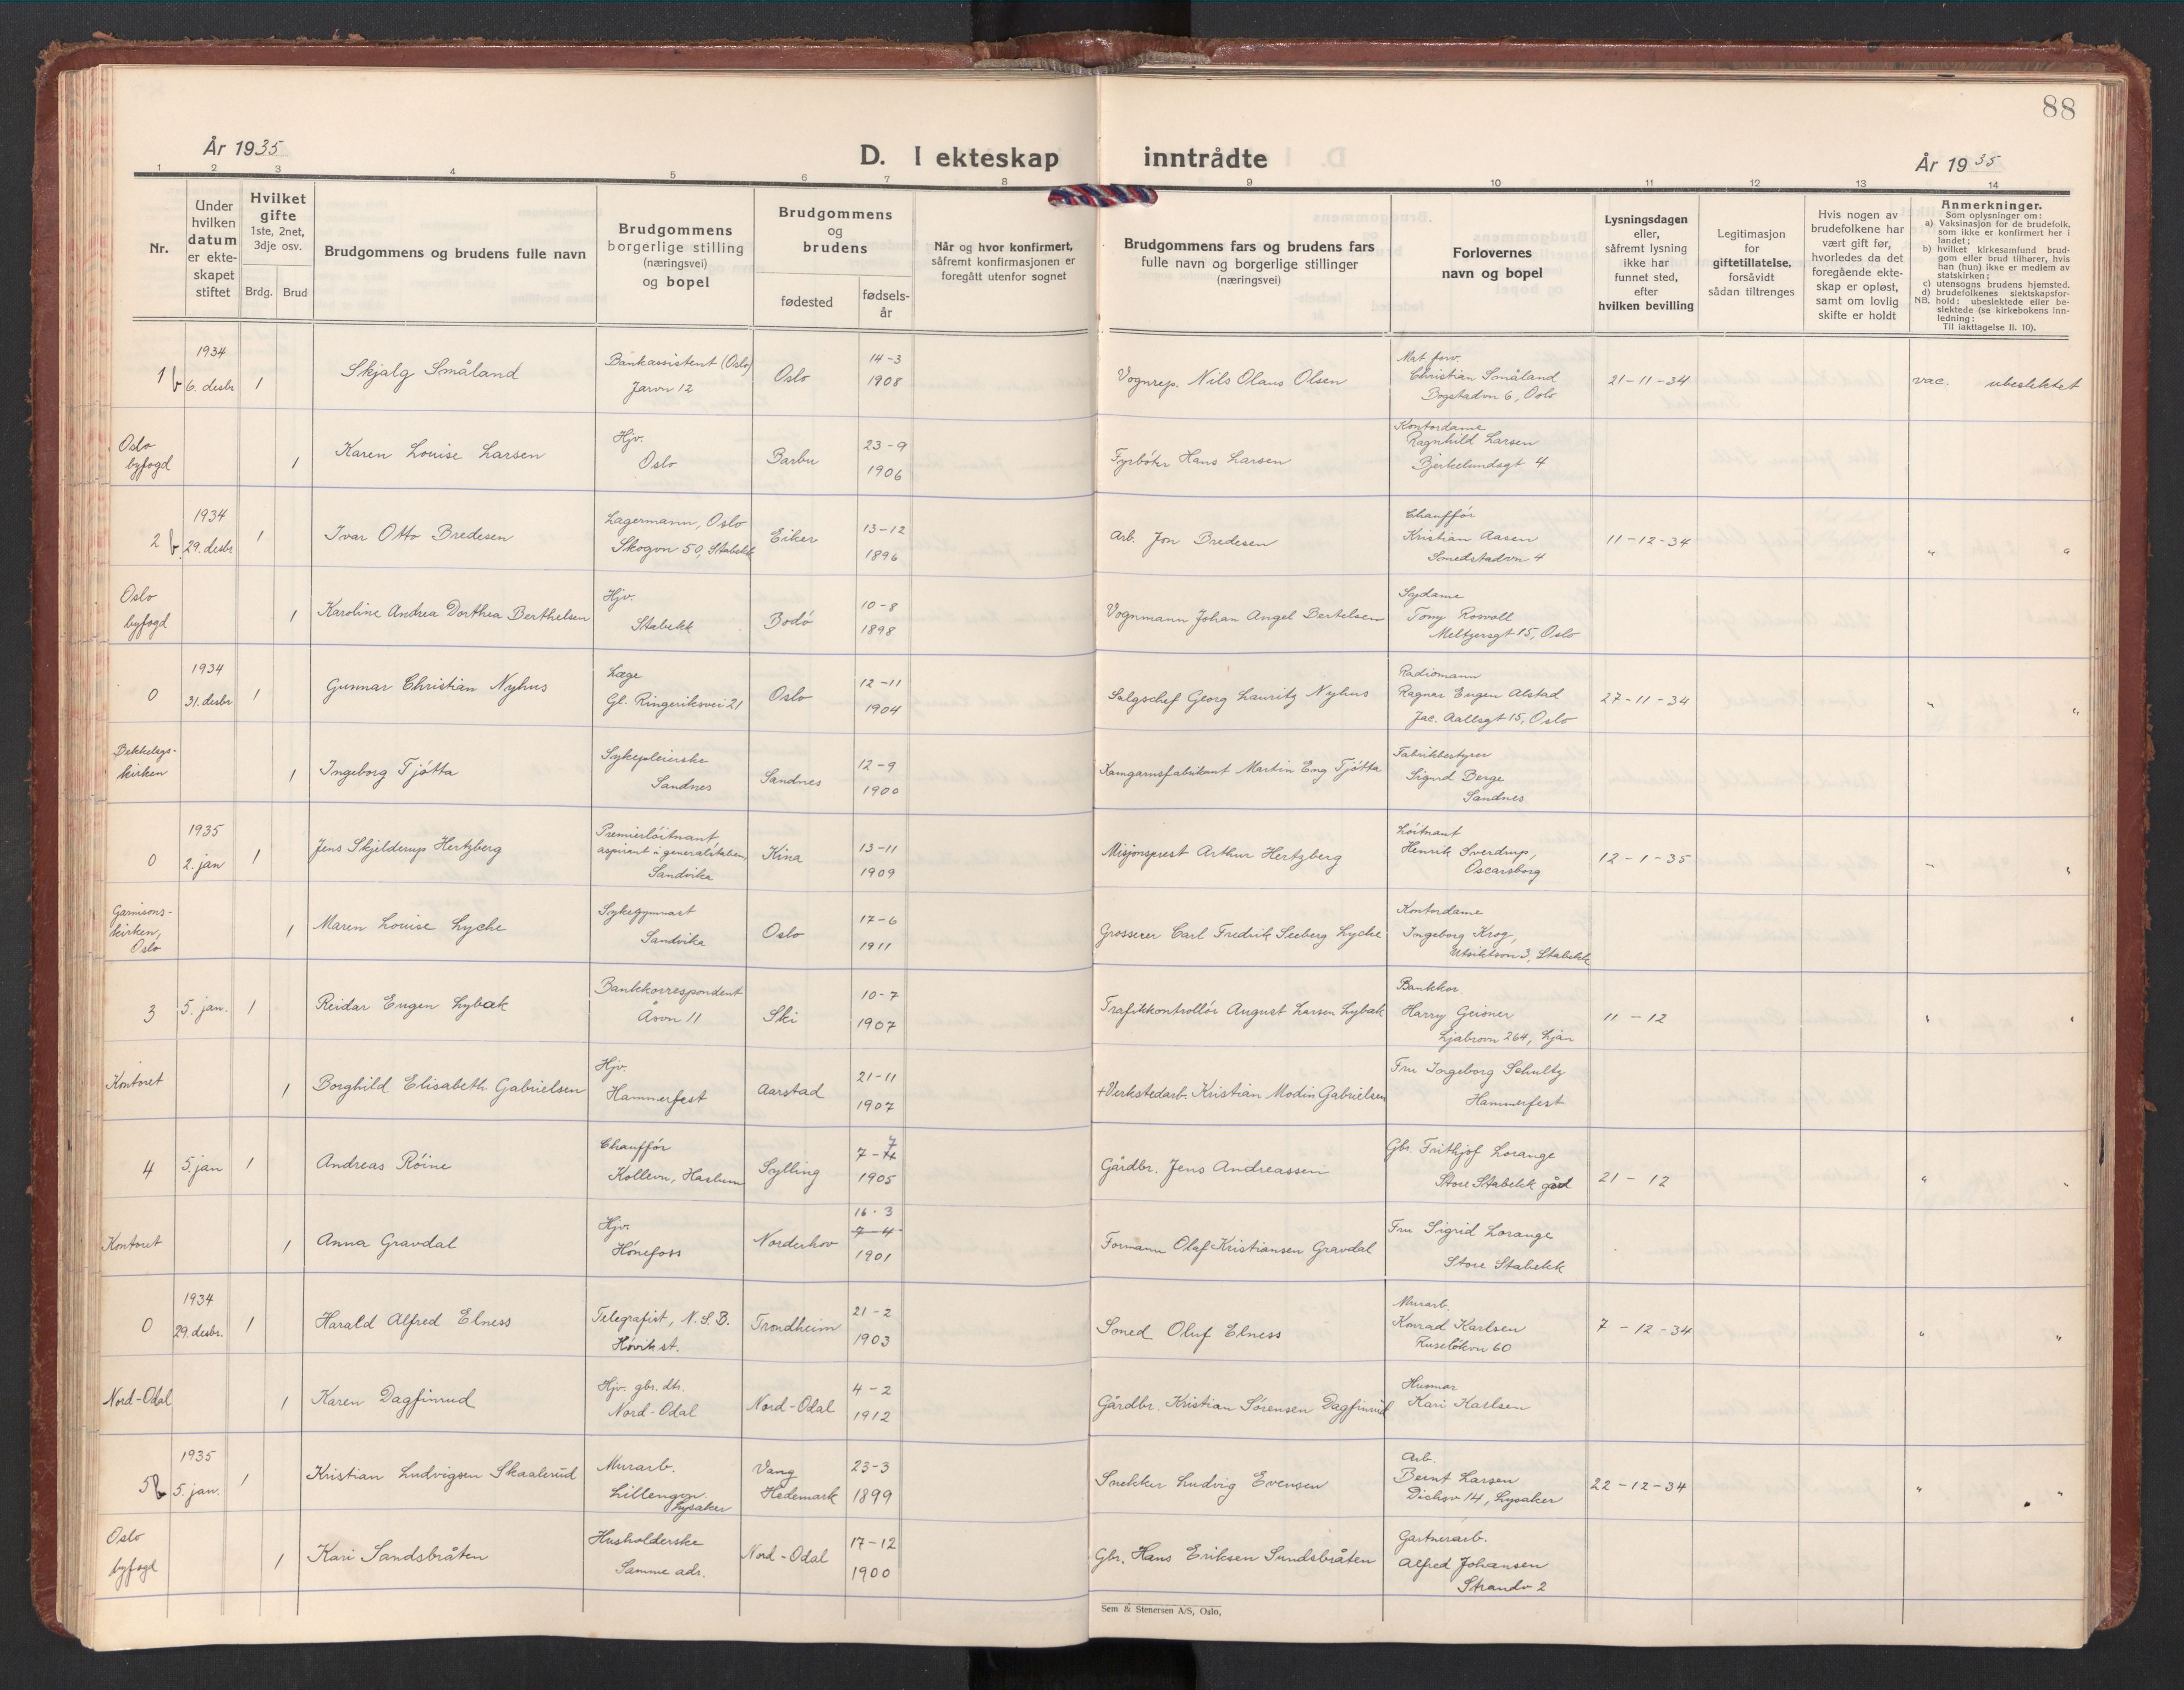 88
År 1935
D. I ekteskap inntrådte
År 1935
1 2 3 4 5 6 7 8 9 10 11 12 13 14
Nr.
Under
hvilken
datum
er ekte-
skapet
stiftet
Hvilket
gifte
1ste, 2net,
3dje osv.
Brdg. Brud
Brudgommens og brudens fulle navn
Brudgommens
borgerlige stilling
(næringsvei)
og bopel
Brudgommens
og
brudens
fødested
fødsels-
år
Når og hvor konfirmert,
såfremt konfirmasjonen er
foregått utenfor sognet
Brudgommens fars og brudens fars
fulle navn og borgerlige stillinger
(næringsvei)
Forlovernes
navn og bopel
Lysningsdagen
eller,
såfremt lysning
ikke har
funnet sted,
efter
hvilken bevilling
Legitimasjon
for
giftetillatelse,
forsåvidt
sådan tiltrenges
Hvis nogen av
brudefolkene har
vært gift før,
hvorledes da det
foregående ekte-
skap er opløst,
samt om lovlig
skifte er holdt
Anmerkninger.
Som oplysninger om:
a) Vaksinasjon for de brudefolk,
som ikke er konfirmert her i
landet;
b) hvilket kirkesamfund brud-
gom eller brud tilhører, hvis
han (hun) ikke er medlem av
statskirken;
c) utensogns brudens hjemsted.
d) brudefolkenes slektskapsfor-
NB. hold: ubeslektede eller be-
slektede (se kirkebokens inn-
ledning:
Til iakttagelse II. 10).
1 b 1934 6. desbr 1 Skjalg Småland Bankassistent (Oslo) Jarvn 12 Oslo 14-3 1908 Vognrep. Nils Olaus Olsen Mat. forv. Christian Småland Bogstadvn 6, Oslo 21-11-34 vac. ubeslektet
Oslo byfogd 1 Karen Louise Larsen Hjv. Oslo Barbu 23-9 1906 Fyrbøter Hans Larsen Kontordame Ragnhild Larsen Bjerkelundsgt 4
2 b. 1934 29. desbr 1 Ivar Otto Bredesen Lagermann, Oslo Skogvn 50, Stabekk Eiker 13-12 1896 Arb. Jon Bredesen Chaufför Kristian Aasen Smedstadvn 4 11-12-34 " "
Oslo byfogd 1 Karoline Andrea Dorthea Berthelsen Hjv. Stabekk Bodö 10-8 1898 Vognmann Johan Angel Bertelsen Sydame Tony Rosvoll Meltzersgt 15, Oslo
0 1934 31. desbr 1 Gunnar Christian Nyhus Læge Gl. Ringeriksvei 21 Oslo 12-11 1904 Salgschef Georg Lauritz Nyhus Radiomann Ragnar Eugen Alstad Jac. Aallsgt 15, Oslo 27-11-34 " "
Bekkelags- kirken 1 Ingeborg Tjötta Sykepleierske Sandnes Sandnes 12-9 1900 Kamgarnsfabrikant Martin Eng Tjötta Fabrikbestyrer Sigurd Berge Sandnes
0 1935 2. jan 1 Jens Skjelderup Hertzberg Premierlöitnant, aspirant i generalstaben, Sandvika Kina 13-11 1909 Misjonsprest Arthur Hertzberg Löitnant Henrik Sverdrup, Oscarsborg 12-1-35 " "
Garnisons- kirken, Oslo 1 Maren Louise Lyche Sykegymnast Sandvika Oslo 17-6 1911 Grosserer Carl Fredrik Seeberg Lyche Kontordame Ingeborg Krog, Utsiktsvn 3, Stabekk
3 5. jan. 1 Reidar Eugen Lybæk Bankkorrespondent Åsvn 11 Ski 10-7 1907 Trafikkontrollör August Larsen Lybæk Bankkor. Harry Geisner Ljabrovn 264, Ljan 11-12 " "
Kontoret 1 Borghild Elisabeth Gabrielsen Hjv. Hammerfest Aarstad 21-11 1907 +Verkstedarb. Kristian Modin Gabrielsen Fru Ingeborg Schultz Hammerfest
4 5. jan 1 Andreas Röine Chaufför Kollevn, Haslum Sylling 7-7 1905 Gårdbr. Jens Andreassen Gbr. Frithjof Lorange Store Stabekk gård 21-12 " "
Kontoret 1 Anna Gravdal Hjv. Hönefoss Norderhov 16-3 7-4 1901 Formann Olaf Kristiansen Gravdal Fru Sigrid Lorange Store Stabekk
0 1934 29. desbr. 1 Harald Alfred Elness Telegrafist, N.S.B. Hövik st. Trondheim 21-2 1903 Smed Oluf Elness Murarb. Konrad Karlsen Ruselökvn 60 7-12-34 " "
Nord-Odal 1 Karen Dagfinrud Hjv. gbr. dtr. Nord-Odal Nord-Odal 4-2 1912 Gårdbr. Kristian Sörensen Dagfinrud Husmor Kari Karlsen
5 b 1935 5. jan. 1 Kristian Ludvigsen Skaalerud Murarb. Lillengvn. Lysaker Vang Hedemark 23-3 1899 Snekker Ludvig Evensen Arb. Bernt Larsen Dichsv 14, Lysaker 22-12-34 " "
Oslo byfogd 1 Kari Sandsbråten Husholderske Samme adr. Nord-Odal 17-12 1900 Gbr. Hans Eriksen Sundsbråten Gartnerarb. Alfred Johansen Strandv 2
Sem & Stenersen A/S, Oslo,